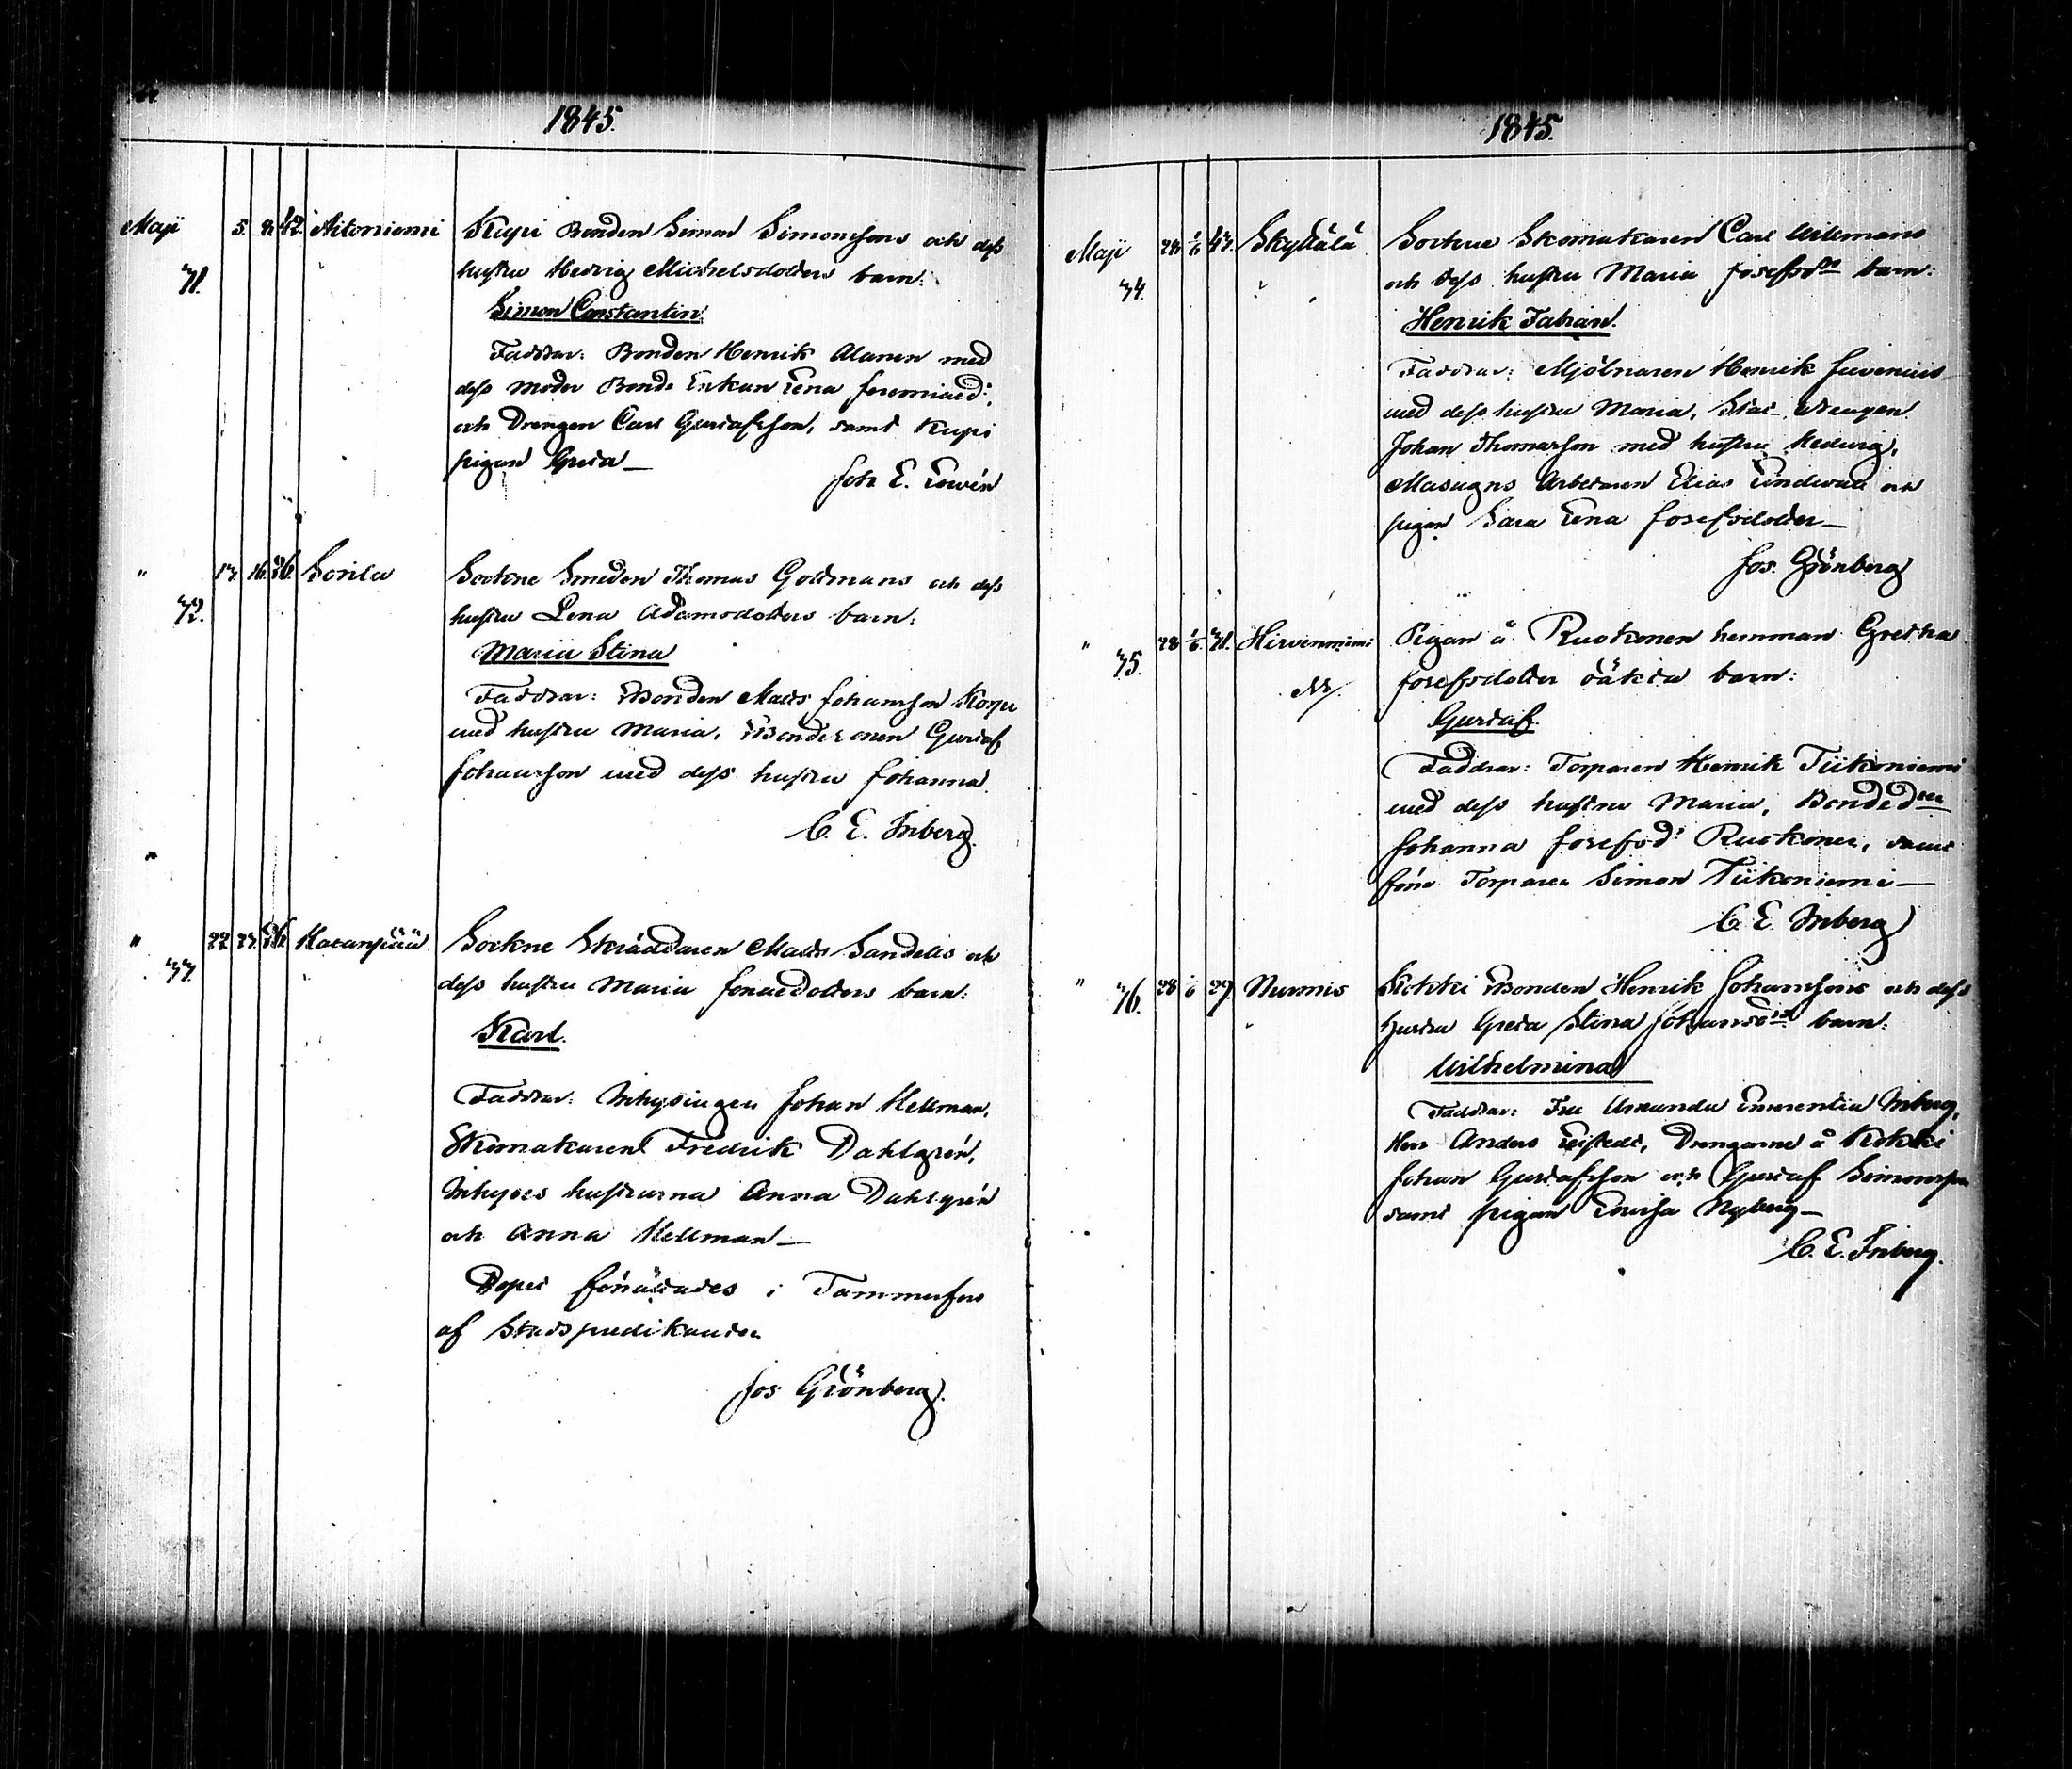 1845.
Maji 5. 42. Aitoniemi Kupi Bonden Simon Simonssons och dess
71. hustru Hedvig Michelsdotters barn:
Simon Constantin
Faddrar: Bonden Henrik Alanen med
dess Moder Bonde Enkan Lena Jeremiaed:,
och Drengen Carl Gustafsson, samt Kupi
pigan Greta
Joh E. Lowén
" 16. 26. Sorila Sockne Smeden Thomas Goltmans och dess
72. hustru Lena Adamsdotters barn:
Maria Stina
Faddrar: Bonden Matts Johansson
med hustru Maria, Bondesonen Gustaf
Johansson med dess hustru Johanna
C. E. Inberg
" 22. 23. Hatanpää Sockne Skräddaren Matts Sandells och
73. dess hustru Maria Jonaedotters barn:
Karl.
Faddrar: Inhysingen Johan Hellman,
Skomakaren Fredrik Dahlgrén,
Inhyses hustrurna Anna Dahlgrén
och Anna Hellman
Dopet förrättades i Tammerfors
af Stadspredikanten
Jos Grönberg.
1845.
Maji 24. 1/6 43. Skyttälä Sockne Skomakaren Carl Willmans
74. och dess hustru Maria Josefsdtr barn:
Henrik Fabian.
Faddrar: Mjölnaren Henrik Juvenius
med dess hustru Maria, drengen
Johan Thomasson med hustru Hedvig,
Masugns Arbetaren Elias Lindwall och
pigan Sara Lena Josefsdotter
Jos. Grönberg
" 28 1/6. 21. Hirvenniemi Pigan å Ruokonen hemman Gretha
75. Josefsdotter oäkta barn:
Gustaf
Faddrar: Torparen Henrik Tiikoniemi
med dess hustru Maria,
Johanna Josefsd: Ruokonen, samt
förre Torparen Simon Tiikoniemi
C. E. Inberg
" 28 1/6 29. Nurmis Kokki Bonden Henrik Johanssons och dess
76. hustru Greta Stina Johansdtr barn:
Wilhelmina
Faddrar: Fru Amanda Emerentia Inberg,
Herr Anders Leistedt, Drengarne å Kokki
Johan Gustafsson och Gustaf Simonsson
samt pigan Lovisa Nyberg
C. E. Inberg.